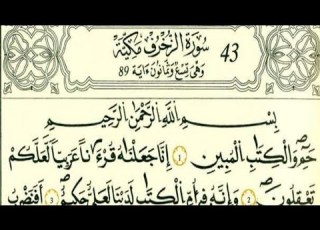 سُورَةُ الزُّخْرُفِ مَكِّيَّة
43
وَهِيَ تِسْعٌ وَثَمَانُونَ ءَايَة 89
بِسْمِ اللَّهِ الرَّحْمَٰنِ الرَّحِيمِ
حمٓ وَالْكِتَٰبِ الْمُبِينِ 1 إِنَّا جَعَلْنَٰهُ قُرْءَٰنًا عَرَبِيًّا لَّعَلَّكُمْ
تَعْقِلُونَ 2 وَإِنَّهُ فِي أُمِّ الْكِتَٰبِ لَدَيْنَا لَعَلِيٌّ حَكِيمٌ 3 أَفَنَضْرِبُ